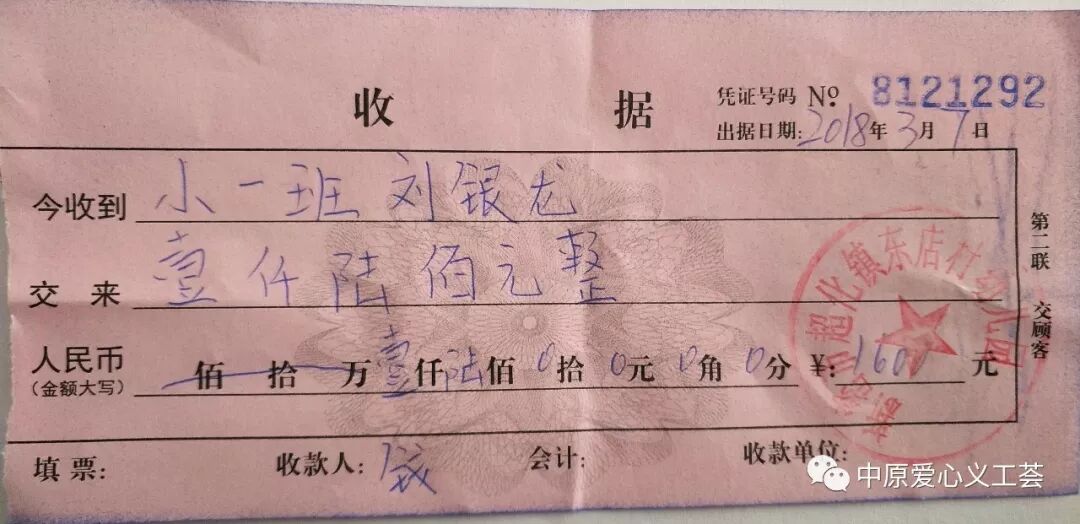 收 据
凭证号码 № 8121292
出据日期: 2018年3月7日
今收到 小一班 刘银龙
交 来 壹仟陆佰元整
人民币 佰 拾 万 壹仟 陆佰 0拾 0元 0角 0分 ¥: 1600 元
(金额大写)
填 票: 收款人: 会计: 收款单位:
第二联 交顾客
超化镇东店村幼儿园
中原爱心义工荟